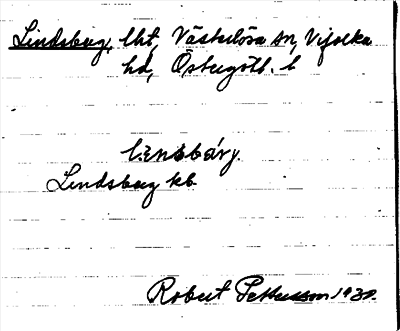 Lindsberg, lht, Västerlösa sn, Vifolka
hd, Östergötl. l
Lindsberg kb
Robert Pettersson 193